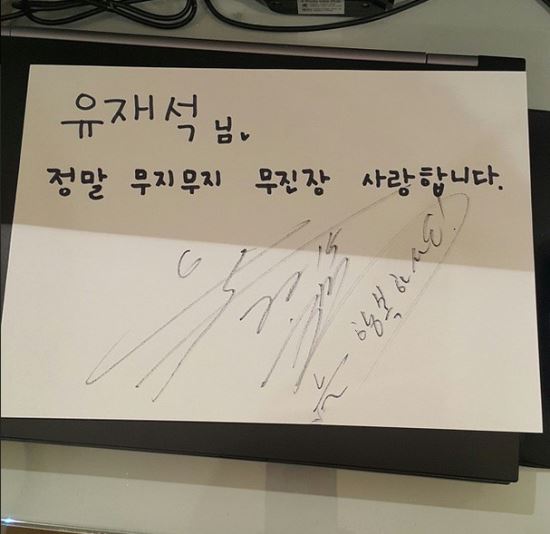 유재석 님.
정말 무지무지 무진장 사랑합니다.
행복하세요!